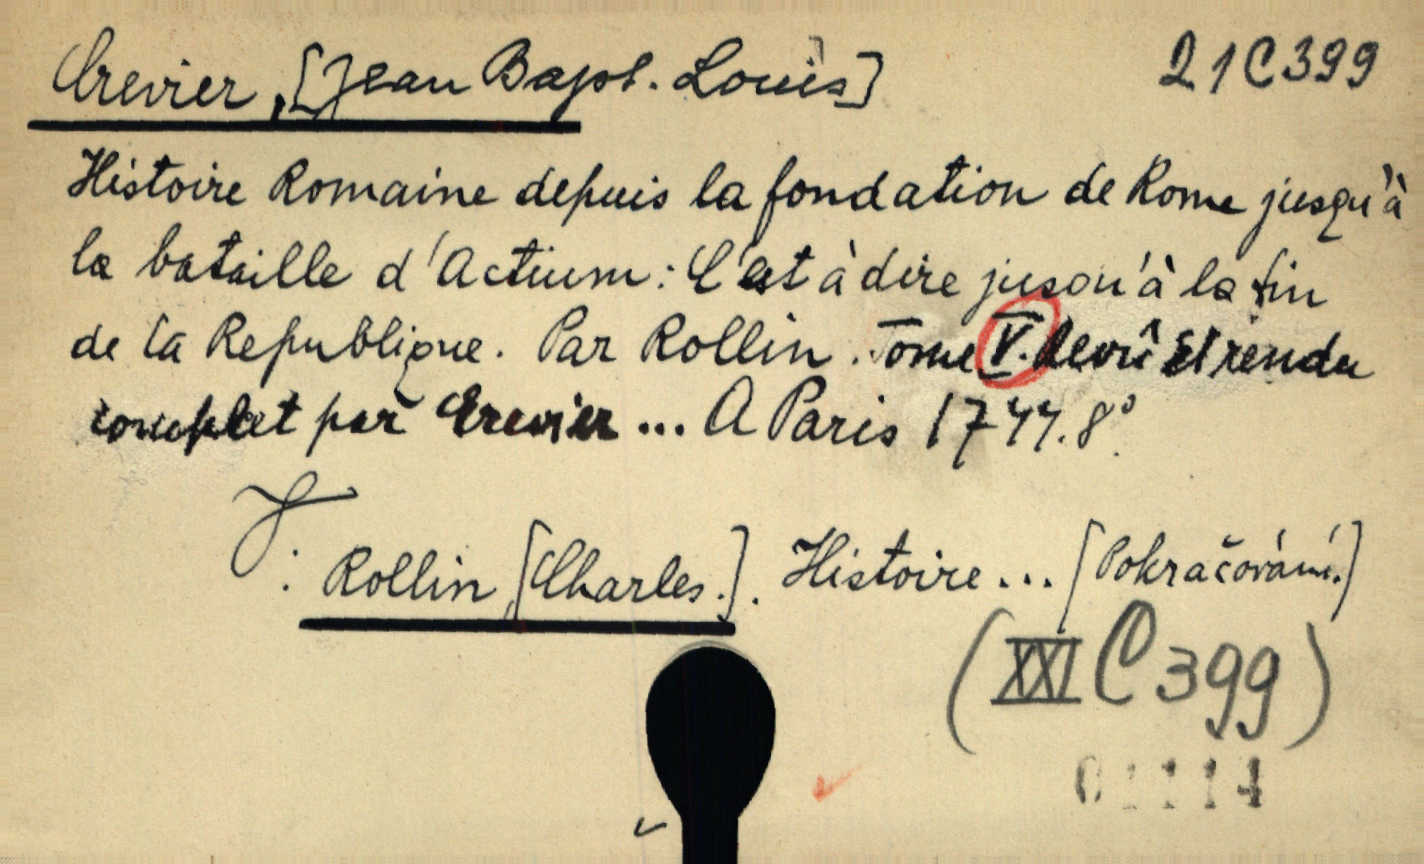 Crevier, [Jean Bapt. Louis]
21C399
Histoire Romaine depuis la fondation de Rome jusqu'à
la bataille d'Actium: C'est à dire jusqu'à la fin
de la Republique. Par Rollin. Tome V. Revû et rendu
complet par Crevier... A Paris 1744. 8°.
Rollin, [Charles.]. Histoire... [Pokračování.]
(XXI C 399)
01114